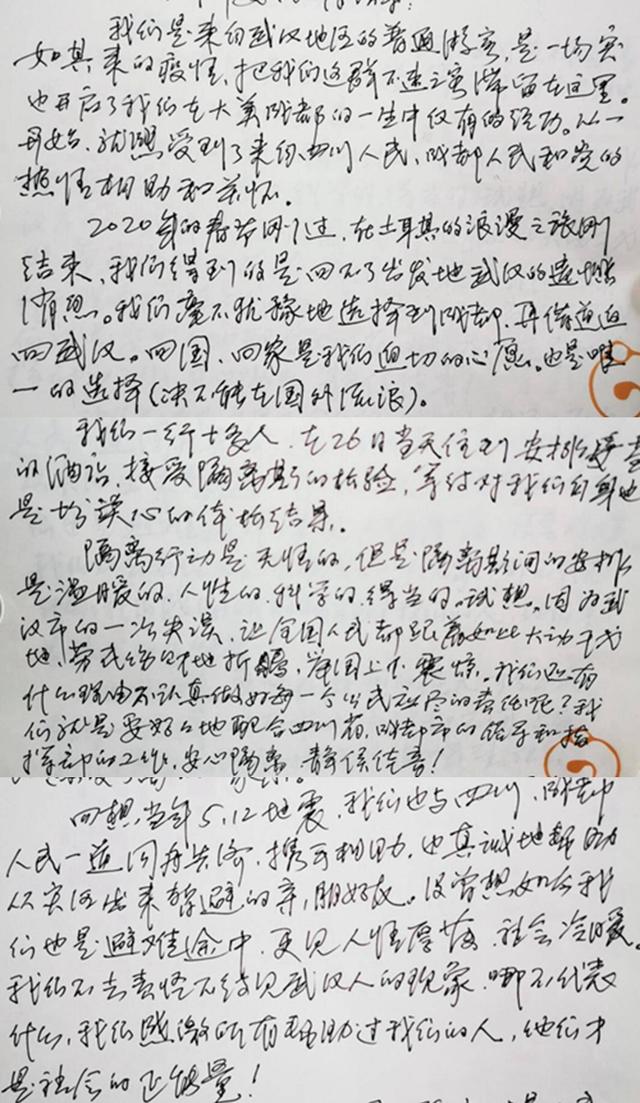 我们是来自武汉地区的普通游客,是一场突
如其来的疫情,把我们这群不速之客滞留在这里。
也开启了我们在大美成都的一生中仅有的经历。从一
开始,就感受到了来自四川人民、成都人民和党的
热情相助和关怀。
2020年的春节刚过,在土耳其的浪漫之旅刚
结束,我们得到的是回不了出发地武汉的遗憾
情愁。我们毫不犹豫地选择到成都,再借道返
回武汉。回国、回家是我们迫切的心愿。也是唯
一的选择(决不能在国外流浪)。
我们一行十多人,在26日当天住到安排
的酒店,接受隔离期的检验,等待对我们自身也
是揪心的体检结果。
隔离行动是无情的,但是隔离期间的安排
是温暖的、人性的、科学的、得当的。试想,因为武
汉市的一次失误,让全国人民都跟着如此大动干戈
地、劳民伤财地折腾,举国上下震惊。我们还有
什么理由不认真做好每一个公民应尽的责任呢?我
们就是要好好地配合四川省、成都市的领导和指
挥部的工作,安心隔离,静候佳音!
回想当年5.12地震,我们也与四川、成都
人民一道同舟共济,携手相助,也真诚地帮助
从灾区出来暂避的亲朋好友。没曾想如今我
们也是避难途中,更见人情厚薄、社会冷暖。
我们不去责怪不待见武汉人的现象,哪不代表
什么,我们感激所有帮助过我们的人,他们才
是社会的正能量!